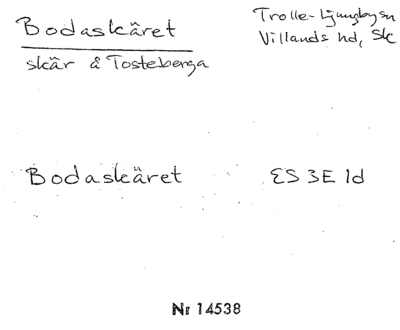 Bodaskäret
Trolle-Ljungby sn
Villands hd, Sk
skär å Tosteberga
Bodaskäret
ES 3E 1d
Nr 14538